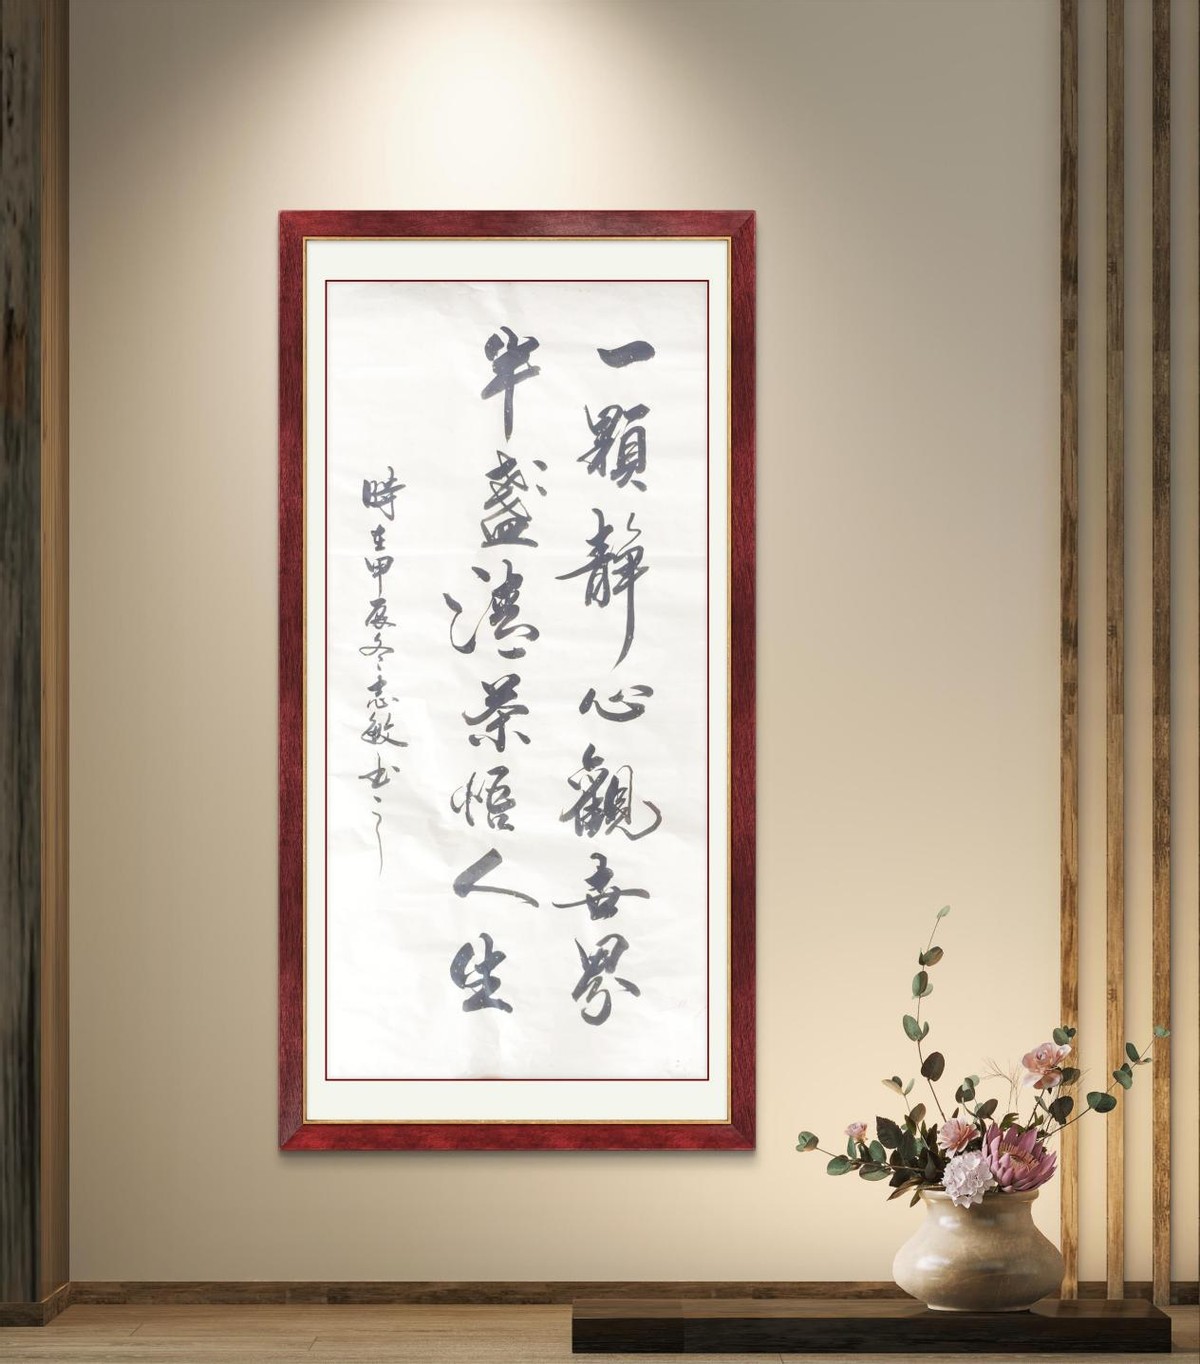 一顆靜心觀世界
半盞清茶悟人生
時在甲辰冬志敏书